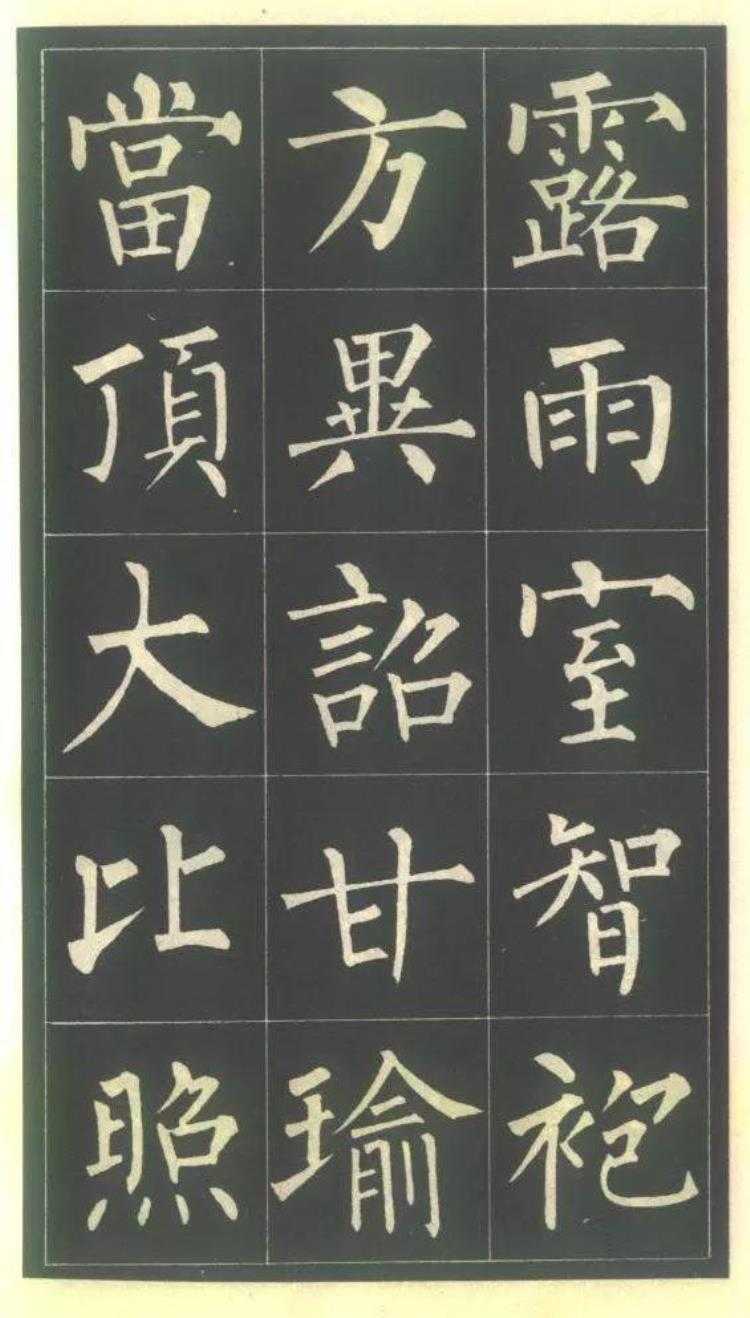 露雨室智袍
方異詔甘瑜
當頂大比照